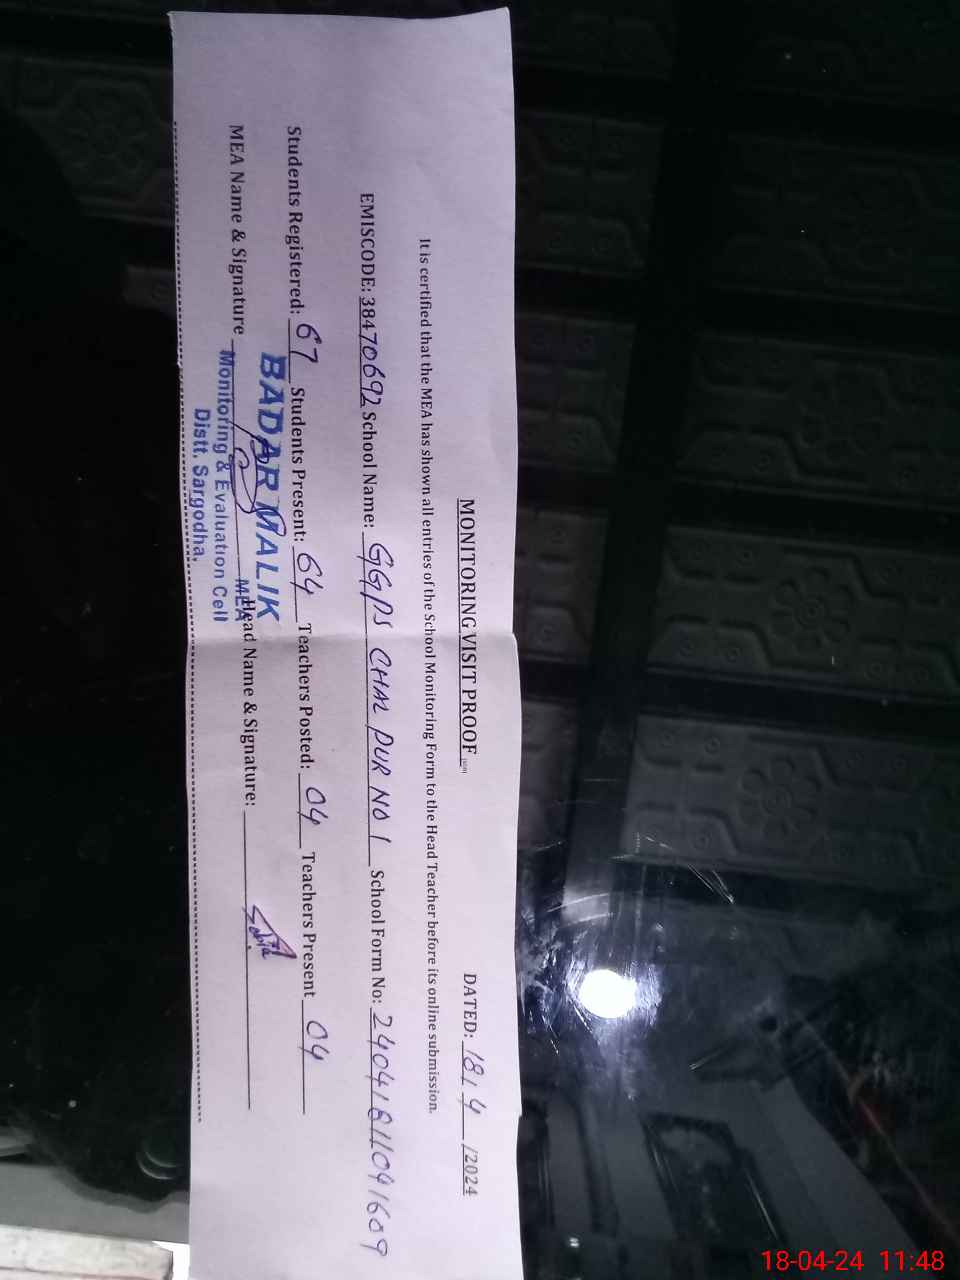 MONITORING VISIT PROOF DATED: 18/4/2024
It is certified that the MEA has shown all entries of the School Monitoring Form to the Head Teacher before its online submission.
EMISCODE: 38470692 School Name: GGPS CHAL PUR NO 1 School Form No:
Students Registered: 67 Students Present: 64 Teachers Posted: 04 Teachers Present 04
BADAR MALIK
MEA Name & Signature MEA Head Name & Signature:
Monitoring & Evaluation Cell
Distt. Sargodha.
18-04-24 11:48